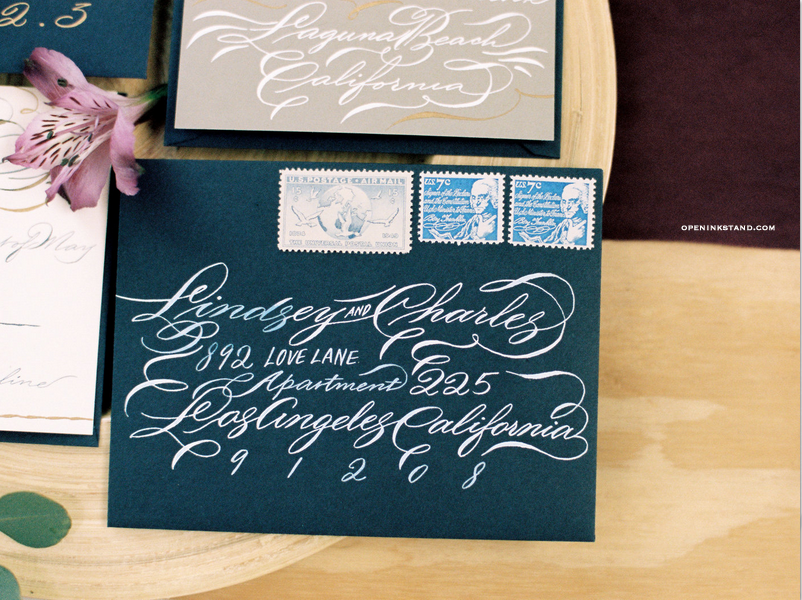 2.3
Laguna Beach
California
U.S. POSTAGE · AIR MAIL
15¢
15¢
1874
1949
THE UNIVERSAL POSTAL UNION
U.S. 7c
U.S. 7c
OPENINKSTAND.COM
of May
Lindsey AND Charles
892 LOVE LANE
Apartment 225
Los Angeles California
9 1 2 0 8
line